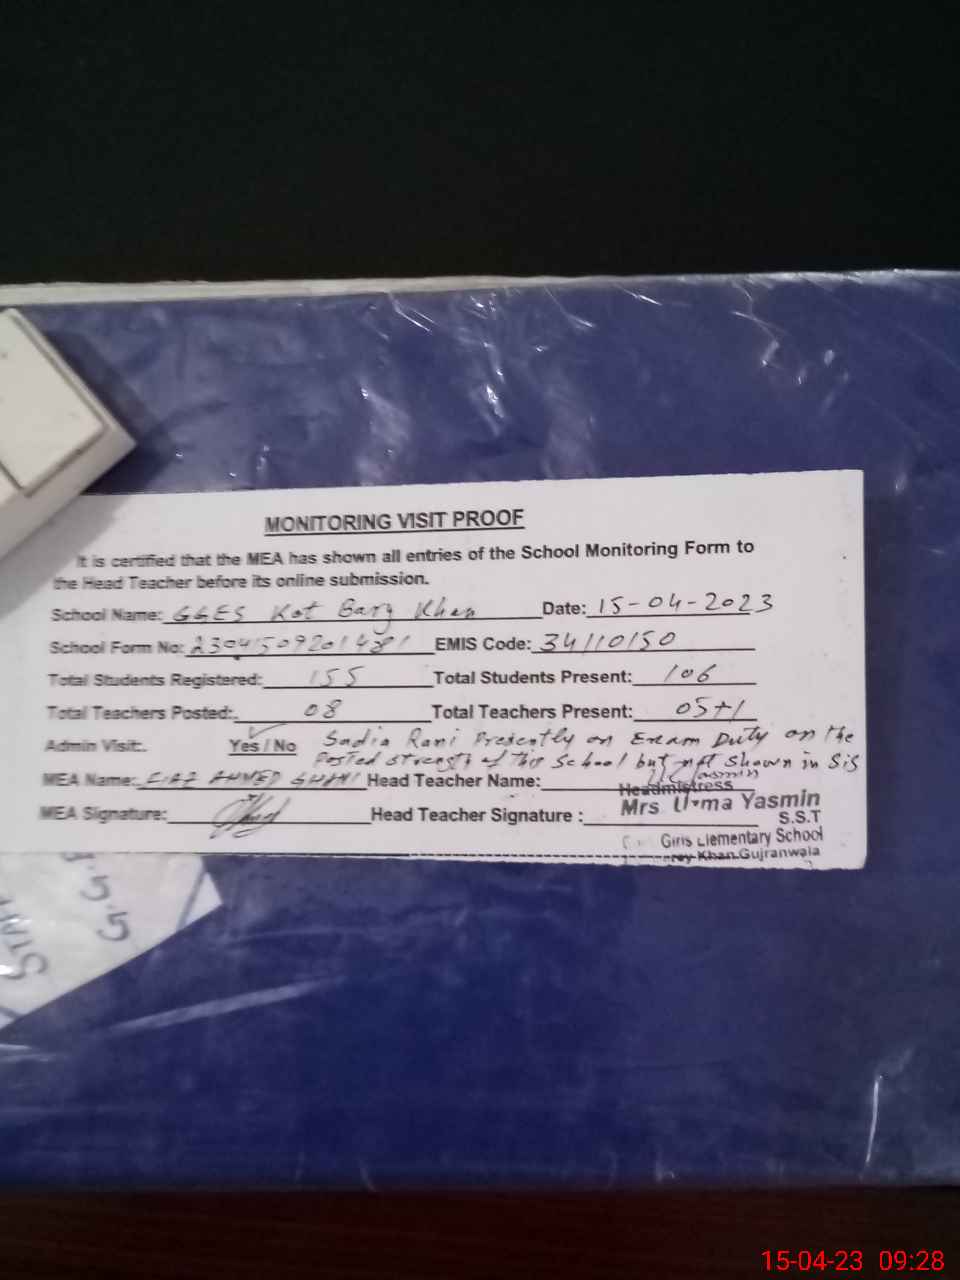 MONITORING VISIT PROOF
It is certified that the MEA has shown all entries of the School Monitoring Form to
the Head Teacher before its online submission.
School Name: GGES Kot Garz Khan Date: 15-04-2023
School Form No: 23041509201481 EMIS Code: 34110150
Total Students Registered: 155 Total Students Present: 106
Total Teachers Posted: 08 Total Teachers Present: 05+1
Admin Visit: Yes / No Sadia Rani Presently on Exam Duty on the
Posted strength of this School but not shown in SiS
MEA Name: AHMED GHANI Head Teacher Name:
Headmistress
MEA Signature: Head Teacher Signature : Mrs Yasmin
S.S.T
Girls Elementary School
Khan Gujranwala
G.G.
STAF
15-04-23 09:28